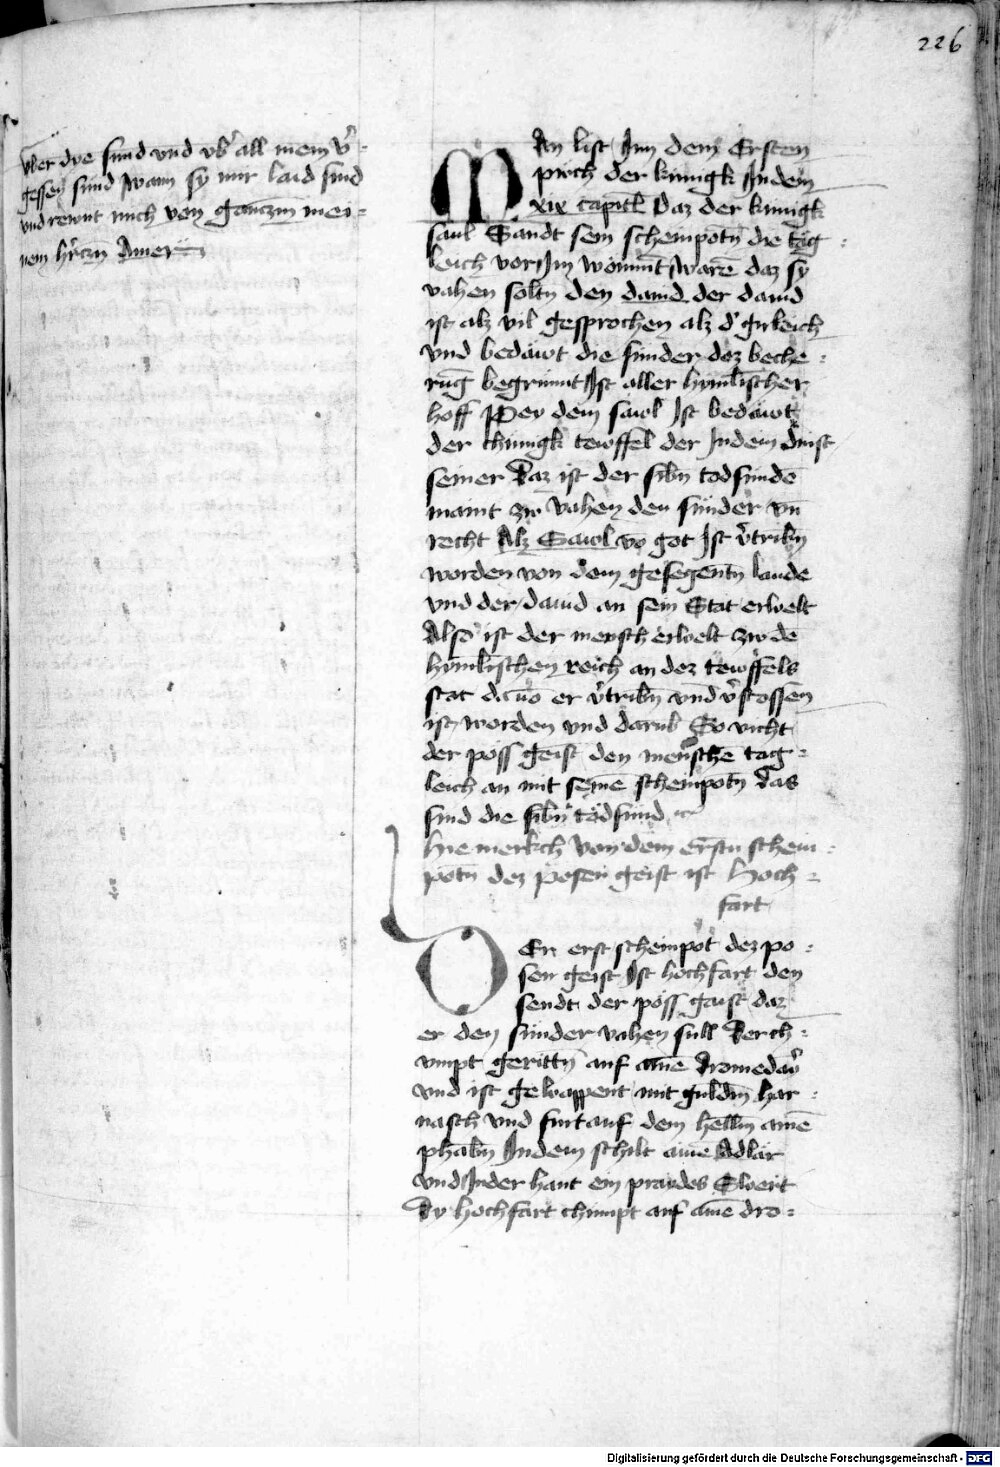 226
vber dye sund vnd vbʼ all mein vʼ-
gessen sund wann sy mir laid sind
vnd rewnt mich von ganczm mei-
nem hʼczn Amen
MAn list Inn dem Ersten
püch der kunigk Indem
xix capitel Daz der kunigk
saul Sandt sein scheinpotn̄ die täg-
leich vor Im wonnūt warē daz sy
vahen soltn̄ den dauid der dauid
ist alz vil gesprochen alz dʼ girleich
vnd bedäwt die sunder dez beche-
rūg begrinnt Ist aller hymlischer
hoff Pey dem sawl Ist bedäwt
der chunigk tewffel der Indem dinst
seiner Daz ist der sibn̄ todsundē
maint zw vahen den sünder vn̄
recht Alz Sawl vō got Ist vʼtribn̄
worden von dem gesegentn̄ lande
vnd der dauid an sein Stat erwelt
Also ist der mensch erwelt zw dē
hymlischen reich an dez tewffels
stat dauō er vʼtribn̄ vnd vʼstossen
ist worden vnd darūb So vicht
der pöss geist den menschē täg-
leich an mit seinē scheinpotn̄ Das
sind die sibn̄ todsund
Hie merkch von dem erstn̄ schein-
potn̄ dez posen geist ist hoch-
fart
DEr erst scheinpot dez po-
sen geist Ist hochfart den
sendt der pöss gaist daz
er den sünder vahen sull Der ch-
vmpt gerittn̄ auf aīnē dromedarʼ
vnd ist gewappent mit guldm̄ har-
nasch vnd furt auf dem hellm̄ ainē
phabm̄ Indem schilt ainē Adlar
vnd Inder hant ein praydes Swert
Dy hochfart chumpt auf ainē dro-
Digitalisierung gefördert durch die Deutsche Forschungsgemeinschaft - DFG